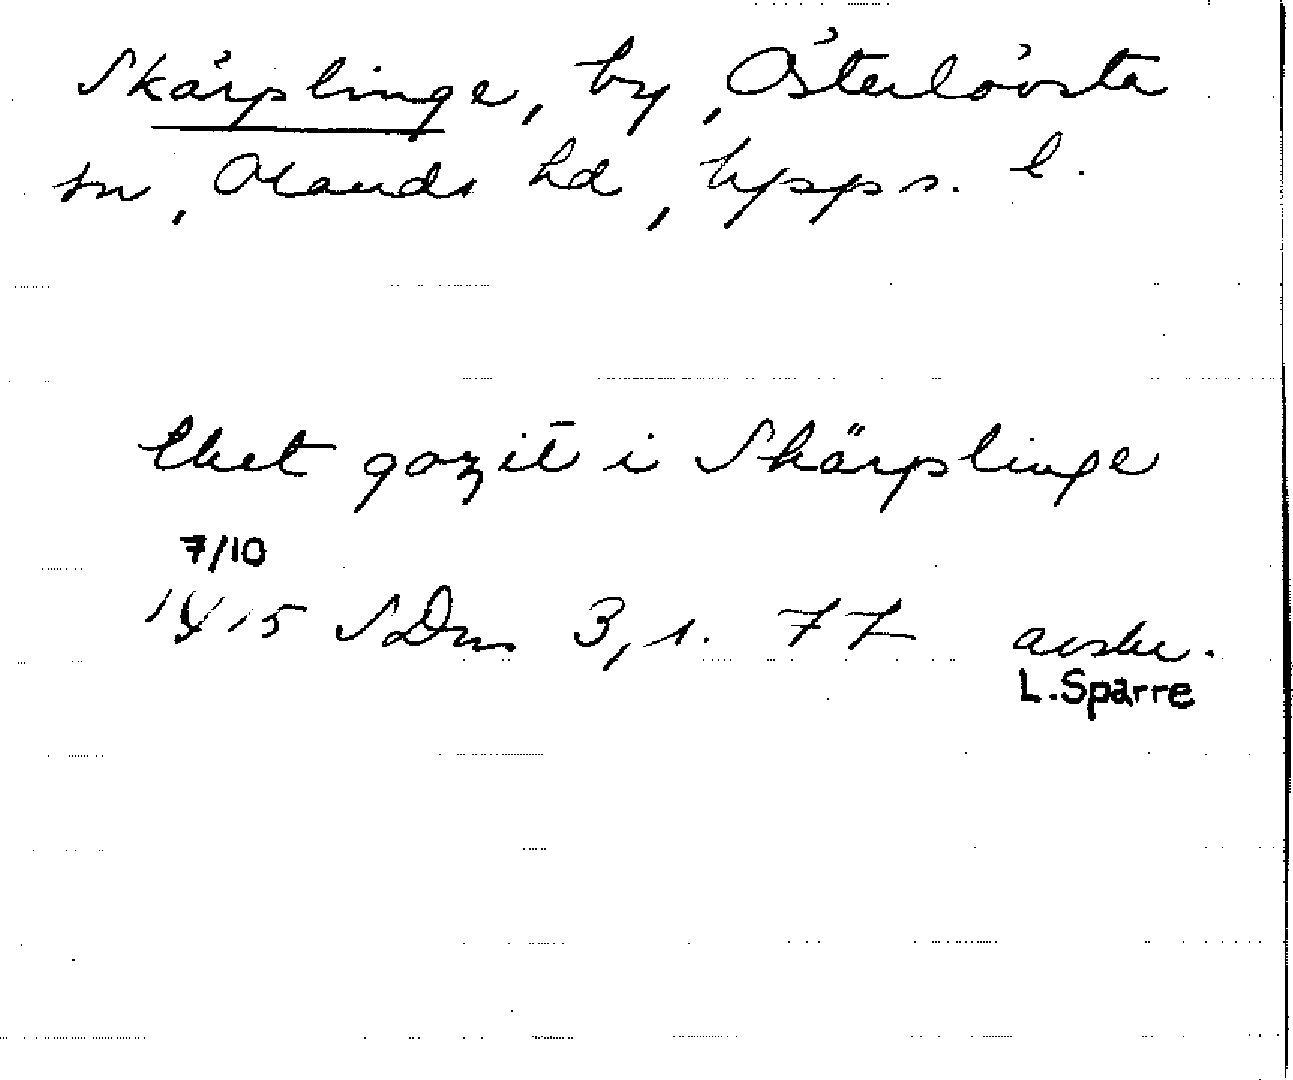 Skärplinge, by, Österlövsta
sn, Olands hd, Upps. l.
Ehet gozit i Skärplinge
7/10
1415 SDns 3, s. 77 avskr.
L. Sparre